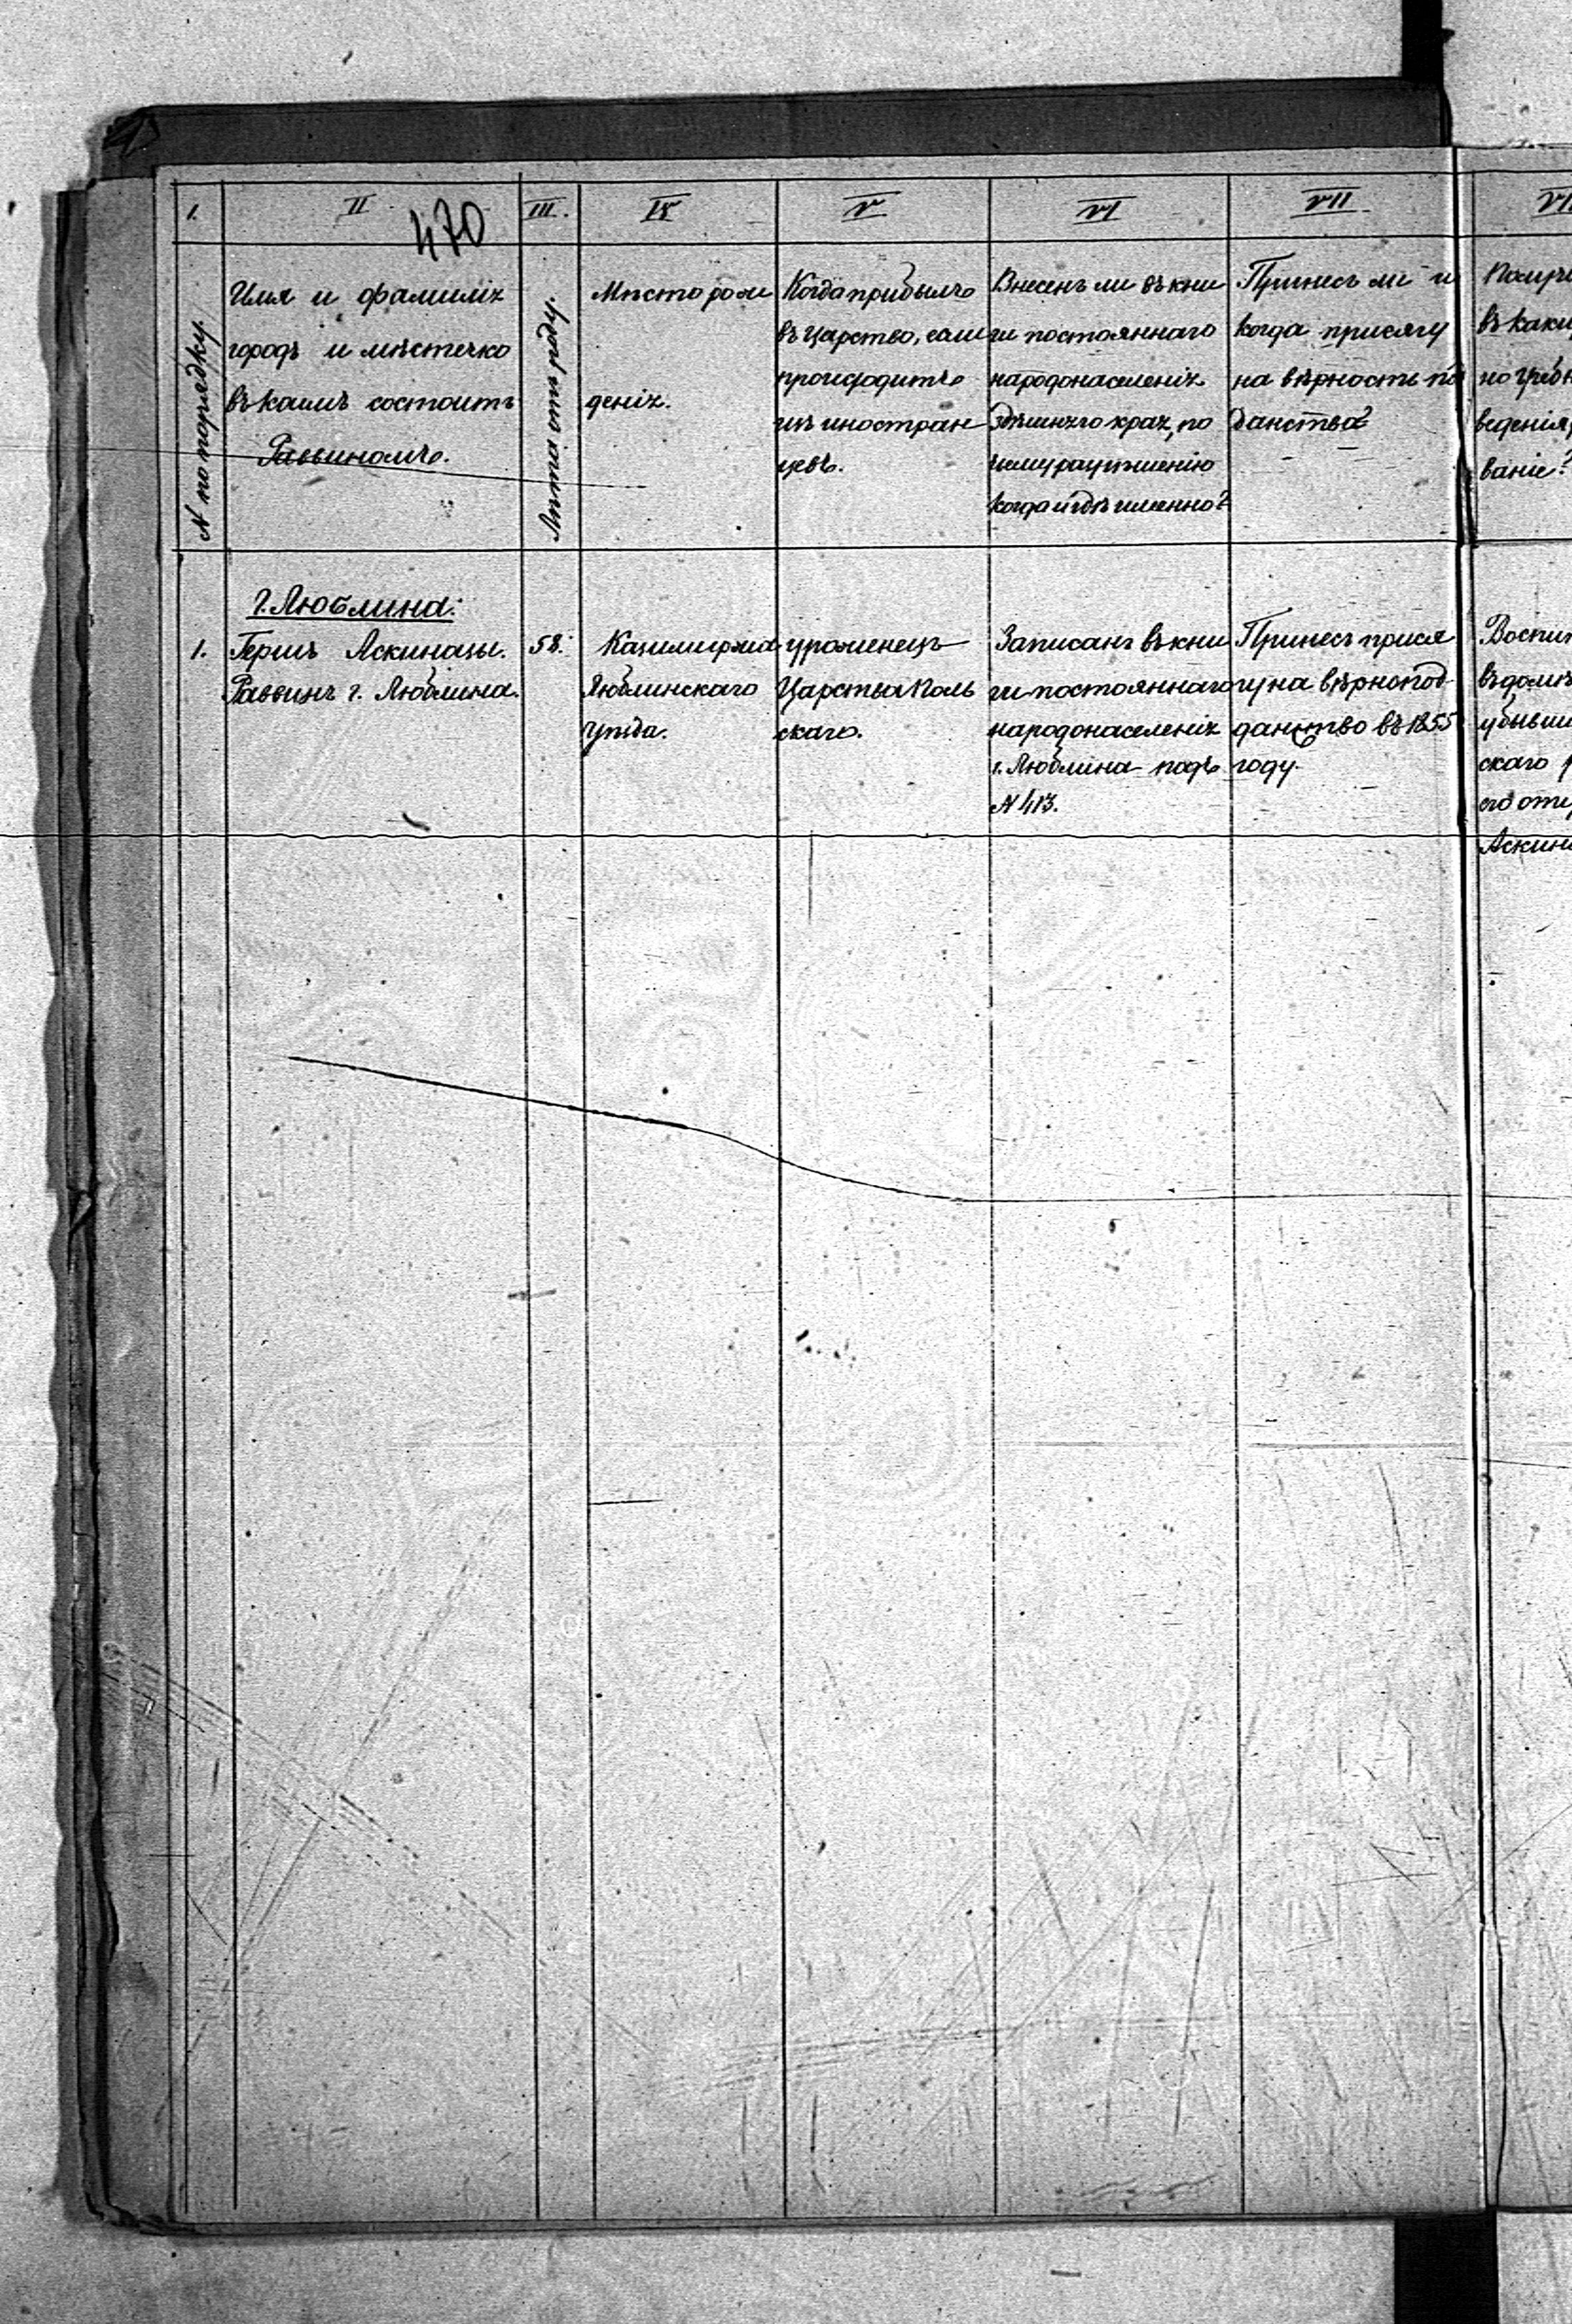 I.
II
470
III.
IV
V
VI
VII
№ по порядку.
Имя и фамилія
городъ и мѣстечко
въ коемъ состоитъ
Раввиномъ.
Лѣта отъ роду.
Мѣсто рож
денія.
Когда прибылъ
въ Царство, если
происходитъ
изъ иностран
цевъ.
Внесенъ ли въ кни
ги постояннаго
народонаселенія
здѣшняго края, по
чьему разрѣшенію
когда и гдѣ именно?
Принесъ ли и
когда присягу
на вѣрность по
данства?
г. Люблина:
1.
Гершъ Аскиназы.
Раввинъ г. Люблина.
58.
Казимиржа
Люблинскаго
Уѣзда.
уроженецъ
Царства Поль
скаго.
Записанъ въ кни
ги постояннаго
народонаселенія
г. Люблина подъ
№ 413.
Принесъ прися
гу на вѣрнопод
данство въ 1855
году.